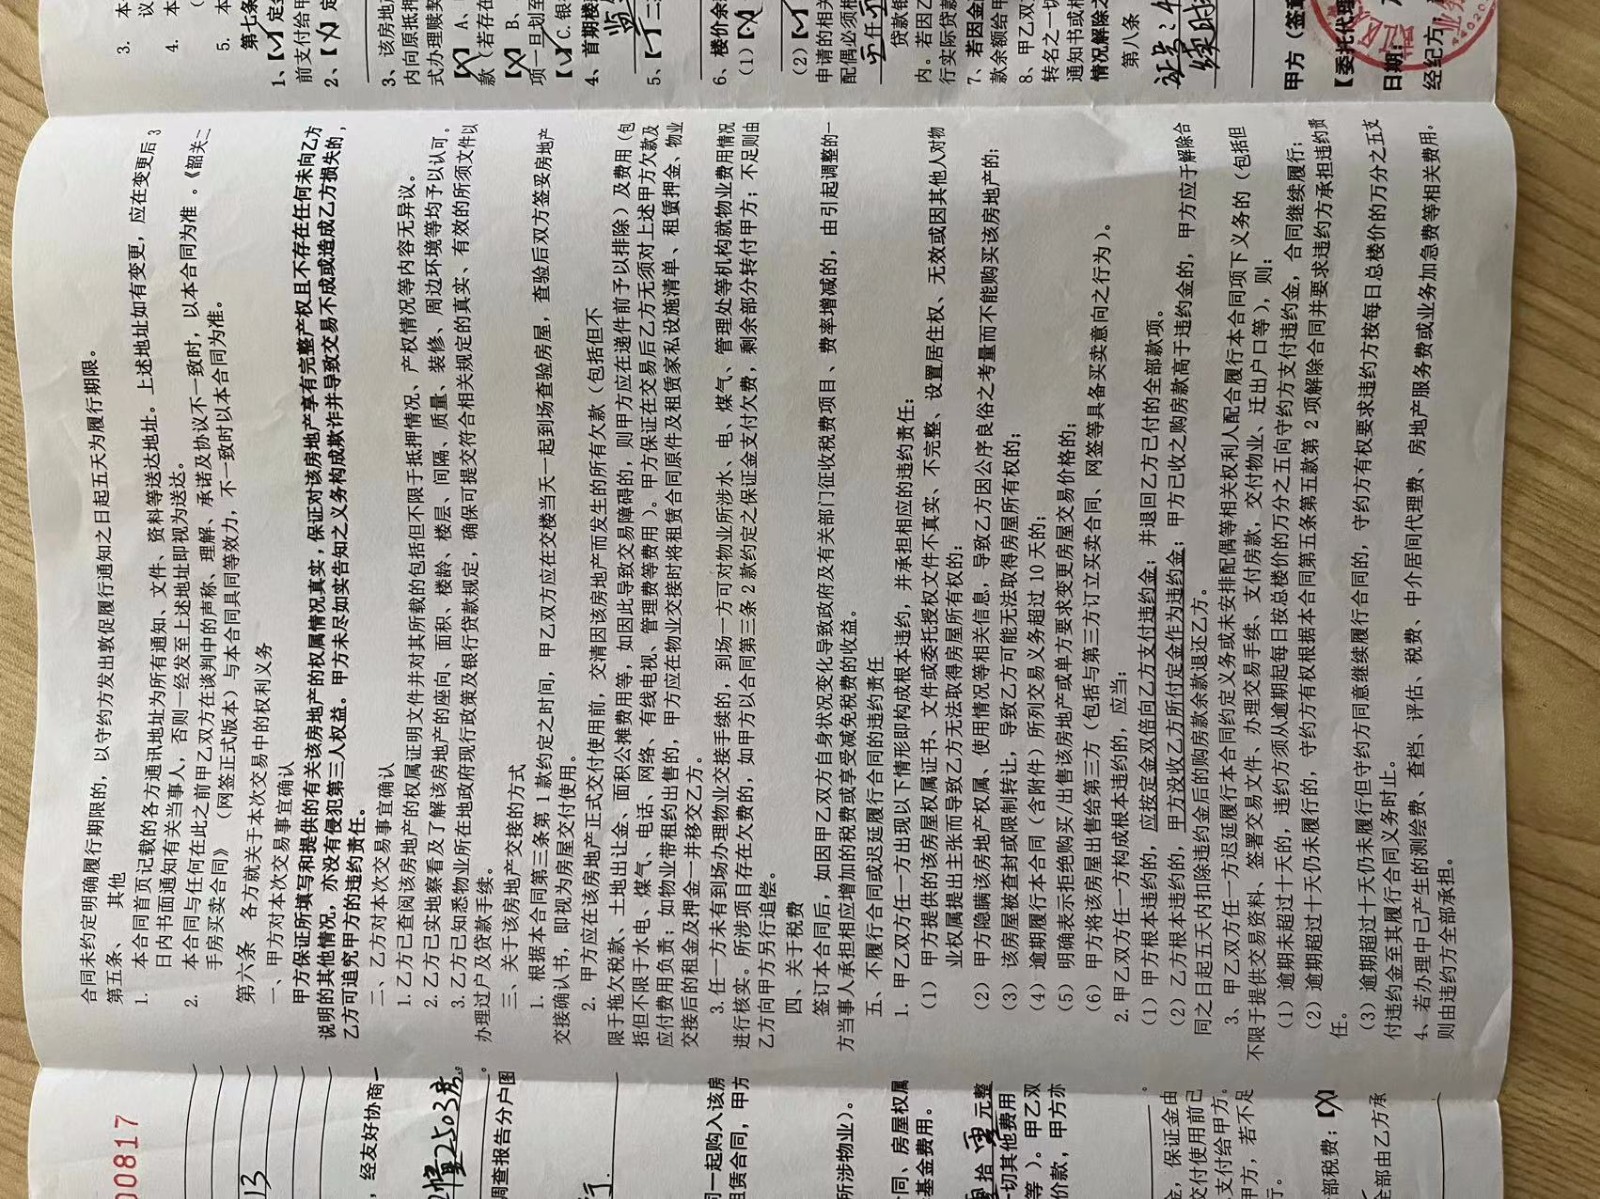 00817
13
，经友好协商一
幢2503房
调查报告分户图
同一起购入该房
租赁合同，甲方
所涉物业）。
同、房屋权属
基金费用。
拾零元整
一切其他费用
等）。甲乙双
价款，甲方亦
金，保证金由
交付使用前已
支付给甲方。
甲方，若不足
行。
部税费；【X】
全部由乙方承
合同未约定明确履行期限的，以守约方发出敦促履行通知之日起五天为履行期限。
第五条、 其他
1. 本合同首页记载的各方通讯地址为所有通知、文件、资料等送达地址。上述地址如有变更，应在变更后 3
日内书面通知有关当事人，否则一经发至上述地址即视为送达。
2. 本合同与任何在此之前甲乙双方在谈判中的声称、理解、承诺及协议不一致时，以本合同为准。《韶关二
手房买卖合同》（网签正式版本）与本合同具同等效力，不一致时以本合同为准。
第六条 各方就关于本次交易中的权利义务
一、甲方对本次交易事宜确认
甲方保证所填写和提供的有关该房地产的权属情况真实，保证对该房地产享有完整产权且不存在任何未向乙方
说明的其他情况，亦没有侵犯第三人权益。甲方未尽如实告知之义务构成欺诈并导致交易不成或造成乙方损失的，
乙方可追究甲方的违约责任。
二、乙方对本次交易事宜确认
1. 乙方已查阅该房地产的权属证明文件并对其所载的包括但不限于抵押情况、产权情况等内容无异议。
2. 乙方已实地察看及了解该房地产的座向、面积、楼龄、楼层、间隔、质量、装修、周边环境等均予以认可。
3. 乙方已知悉物业所在地政府现行政策及银行贷款规定，确保可提交符合相关规定的真实、有效的所须文件以
办理过户及贷款手续。
三、关于该房地产交接的方式
1. 根据本合同第三条第 1 款约定之时间，甲乙双方应在交楼当天一起到场查验房屋，查验后双方签妥房地产
交接确认书，即视为房屋交付使用。
2. 甲方应在该房地产正式交付使用前，交清因该房地产而发生的所有欠款（包括但不
限于拖欠税款、土地出让金、面积公摊费用等，如因此导致交易障碍的，则甲方应在递件前予以排除）及费用（包
括但不限于水电、煤气、电话、网络、有线电视、管理费等费用）。甲方保证在交易后乙方无须对上述甲方欠款及
应付费用负责；如物业带租约出售的，甲方应在物业交接时将租赁合同原件及租赁家私设施清单、租赁押金、物业
交接后的租金及押金一并移交乙方。
3. 任一方未有到场办理物业交接手续的，到场一方可对物业所涉水、电、煤气、管理处等机构就物业费用情况
进行核实。所涉项目存在欠费的，如甲方以合同第三条 2 款约定之保证金支付欠费，剩余部分转付甲方；不足则由
乙方向甲方另行追偿。
四、关于税费
签订本合同后，如因甲乙双方自身状况变化导致政府及有关部门征收税费项目、费率增减的，由引起调整的一
方当事人承担相应增加的税费或享受减免税费的收益。
五、不履行合同或迟延履行合同的违约责任
1. 甲乙双方任一方出现以下情形即构成根本违约，并承担相应的违约责任：
（1） 甲方提供的该房屋权属证书、文件或委托授权文件不真实、不完整、设置居住权、无效或因其他人对物
业权属提出主张而导致乙方无法取得房屋所有权的；
（2） 甲方隐瞒该房地产权属、使用情况等相关信息，导致乙方因公序良俗之考量而不能购买该房地产的；
（3） 该房屋被查封或限制转让，导致乙方可能无法取得房屋所有权的；
（4） 逾期履行本合同（含附件）所列交易义务超过 10 天的；
（5） 明确表示拒绝购买/出售该房地产或单方要求变更房屋交易价格的；
（6） 甲方将该房屋出售给第三方（包括与第三方订立买卖合同、网签等具备买卖意向之行为）。
2. 甲乙双方任一方构成根本违约的，应当：
（1）甲方根本违约的，应按定金双倍向乙方支付违约金；并退回乙方已付的全部款项。
（2）乙方根本违约的，甲方没收乙方所付定金作为违约金；甲方已收之购房款高于违约金的，甲方应于解除合
同之日起五天内扣除违约金后的购房款余款退还乙方。
3、甲乙双方任一方迟延履行本合同约定义务或未安排配偶等相关权利人配合履行本合同项下义务的（包括但
不限于提供交易资料、签署交易文件、办理交易手续、支付房款、交付物业、迁出户口等），则：
（1）逾期未超过十天的，违约方须从逾期起每日按总楼价的万分之五向守约方支付违约金，合同继续履行；
（2）逾期超过十天仍未履行的，守约方有权根据本合同第五条第五款第 2 项解除合同并要求违约方承担违约责
任。
（3）逾期超过十天仍未履行但守约方同意继续履行合同的，守约方有权要求违约方按每日总楼价的万分之五支
付违约金至其履行合同义务时止。
4、若办理中已产生的测绘费、查档、评估、税费、中介居间代理费、房地产服务费或业务加急费等相关费用，
则由违约方全部承担。
3. 本
议
4. 本
5. 本
第七条
1、【✓】定金
前支付给甲
2、【X】定
3、该房地产
内向原抵押
式办理赎契
【X】A、
款（若存在
【X】B、
项一旦划至
【✓】C. 银
4、首期楼
监
5、【
6、楼价余
（1）【X】
（2）【✓】
申请的相关
配偶必须相
贷款银
内。若因乙
行实际贷款
7、若因金
款余额给甲
8、甲乙双
转名之一切
通知书或相
情况解除之
第八条
甲方（签章
【委托代理
日期：
经纪方
业务